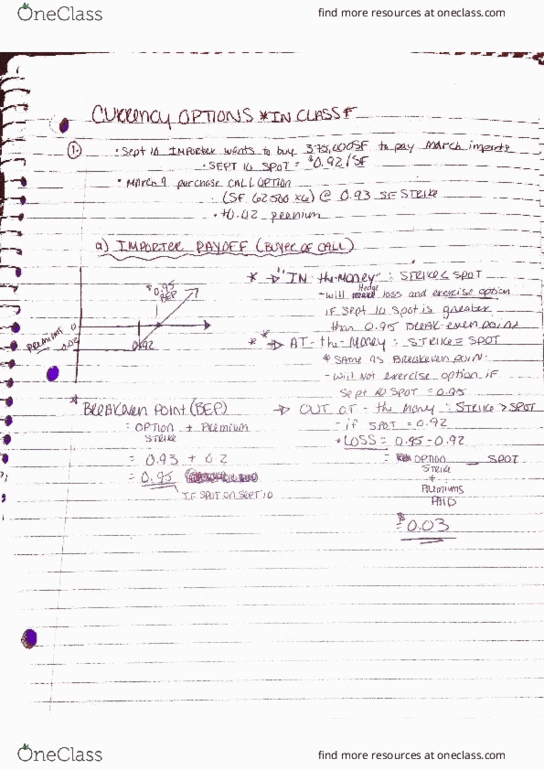 OneClass
find more resources at oneclass.com
CURRENCY OPTIONS *IN CLASS*
1.
• Sept 10 IMPORTER wants to buy 375,000SF to pay March imports
• SEPT 10 SPOT = $0.92/SF
• MARCH 9 purchase CALL OPTION
(SF 62500 x6) @ 0.93 SF STRIKE
• +0.02 premium
a) IMPORTER PAYOFF (BUYER OF CALL)
$0.95
BEP
premiums
0
-0.02
0.92
* → "IN the-Money" : STRIKE < SPOT
- will Hedge loss and exercise option
IF Sept 10 Spot is greater
than 0.95 BREAK-even point
* → AT-the-Money : STRIKE = SPOT
* SAME AS Breakeven point
- will not exercise option if
Sept 10 SPOT = 0.95
* BREAKEVEN POINT (BEP)
= OPTION STRIKE + Premium
= 0.93 + 0.2
= 0.95
IF SPOT ON SEPT 10
→ OUT OF - the Money : STRIKE > SPOT
- if SPOT = 0.92
• LOSS = 0.95 - 0.92
= OPTION STRIKE + Premiums PAID - SPOT
= $0.03
OneClass
find more resources at oneclass.com